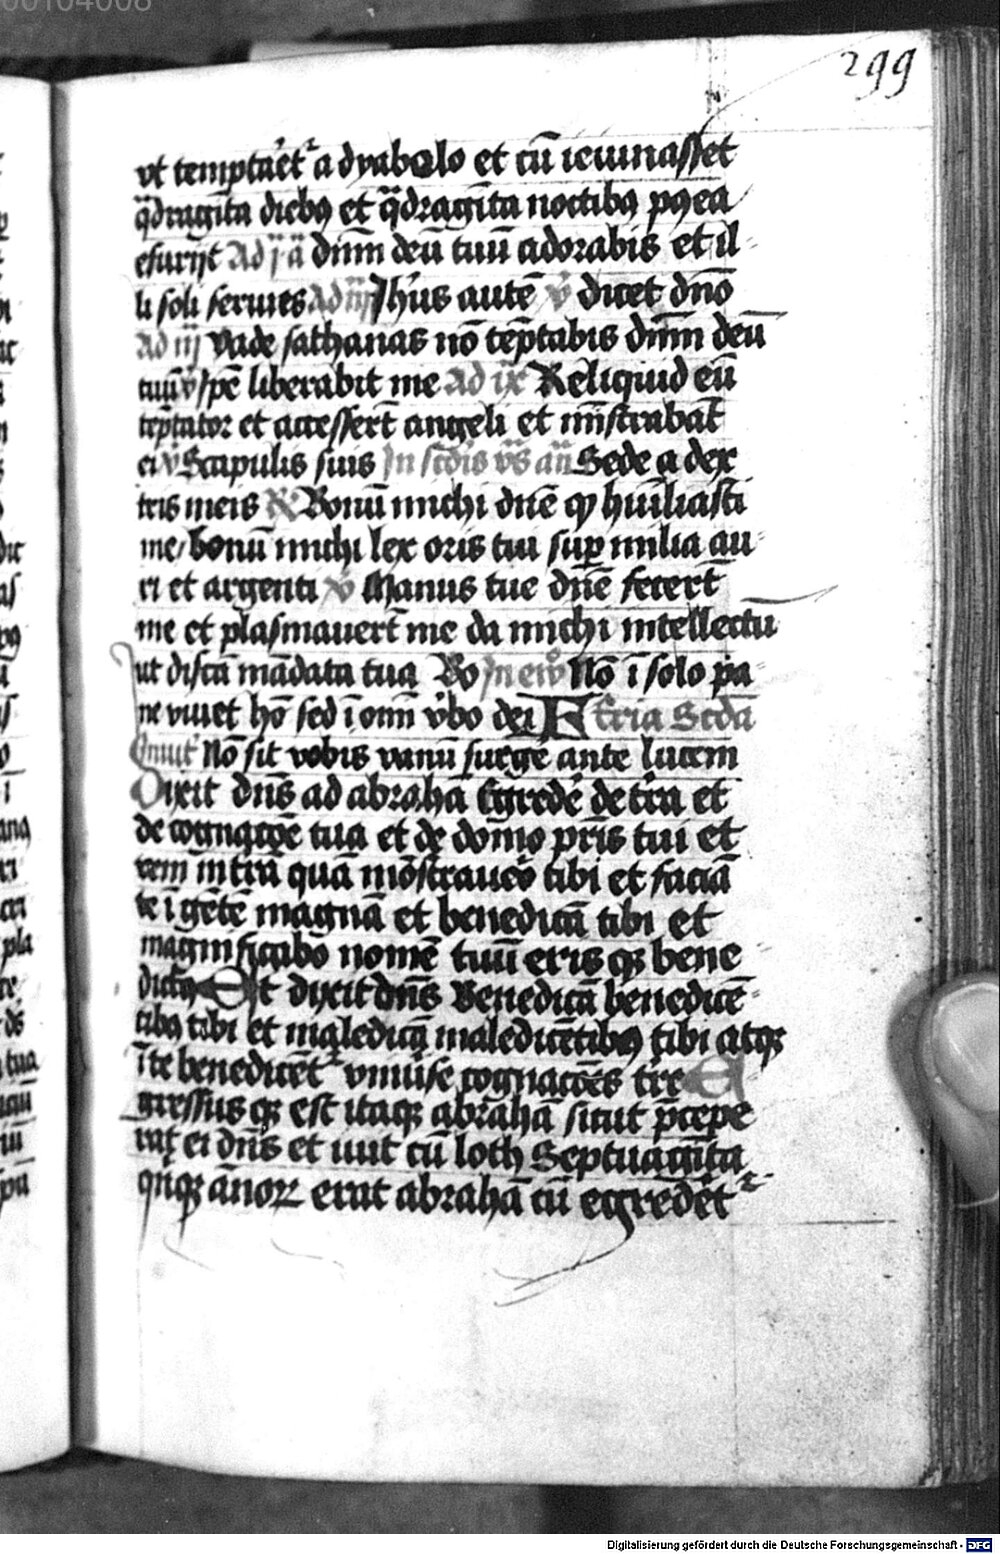 00104008
299
vt temptaret᷑ a dyabolo et cū ieiunasset
q̄dragīta dieb9 et q̄dragīta noctib9 p9ea
esurijt Ad j ā dn̄m deū tuū adorabis et il-
li soli seruies Ad iij Jh's autē v̄ dicet dn̄o
Ad iij Vade sathanas nō tēptabis dn̄m deū
tuū v̄ Ipē liberabit me Ad ix Reliquid eū
tēptator et accesserт̄ angeli et mīstrabāt
ei v̄ Scapulis suis In scd̄is v̄s an̄ Sede a dex
tris meis R Bonū michi dn̄e qꝫ hūiliasti
me bonū michi lex oris tui sup̱ milia au-
ri et argenti v̄ Manus tue dn̄e fecert̄
me et plasmauert̄ me da michi intellectū
ut discā mādata tua Bo In ew̄ Nō ī solo pa-
ne viuet hō sed ī om̄i v̄bo dei Feria Scd̄a
Inuit̄ Nō sit vobis vanū surge ante lucem
Dixit dn̄s ad abrahā Egrede de t̄ra et
de cognacōe tua et de domo pr̄is tui et
veni in t̄rā quā mōstrauero tibi et faciā
te ī gētē magnā et benedicā tibi et
magnificabo nomē tuū eris qꝫ bene
dict9 Et dixit dn̄s Benedicā benedicē-
tib9 tibi et maledicā maledicētib9 tibi atqꝫ
ī te benedicēt᷑ vniūse cognacōes t̄re E
gressus qꝫ est itaqꝫ abrahā sicut p̄cepe
rat ei dn̄s et iuit cū loth Septuagīta
qnqꝫ annoꝝ erat abrahā cū egrederet᷑
Digitalisierung gefördert durch die Deutsche Forschungsgemeinschaft - DFG